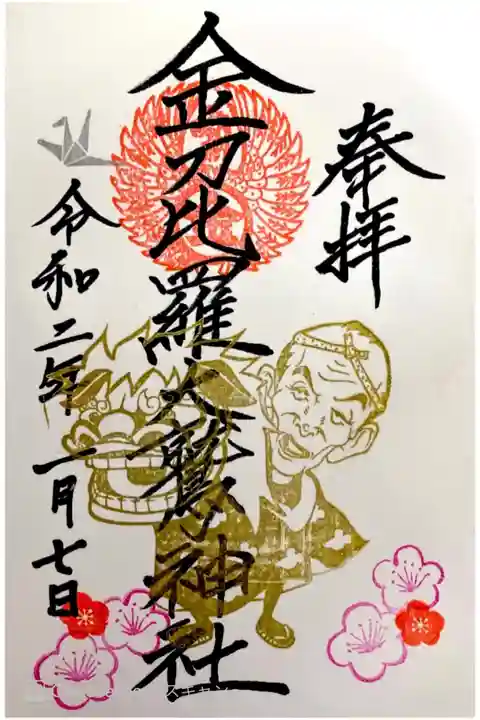 奉拝
金刀比羅大鷲神社
令和二年 一月七日
スキャン